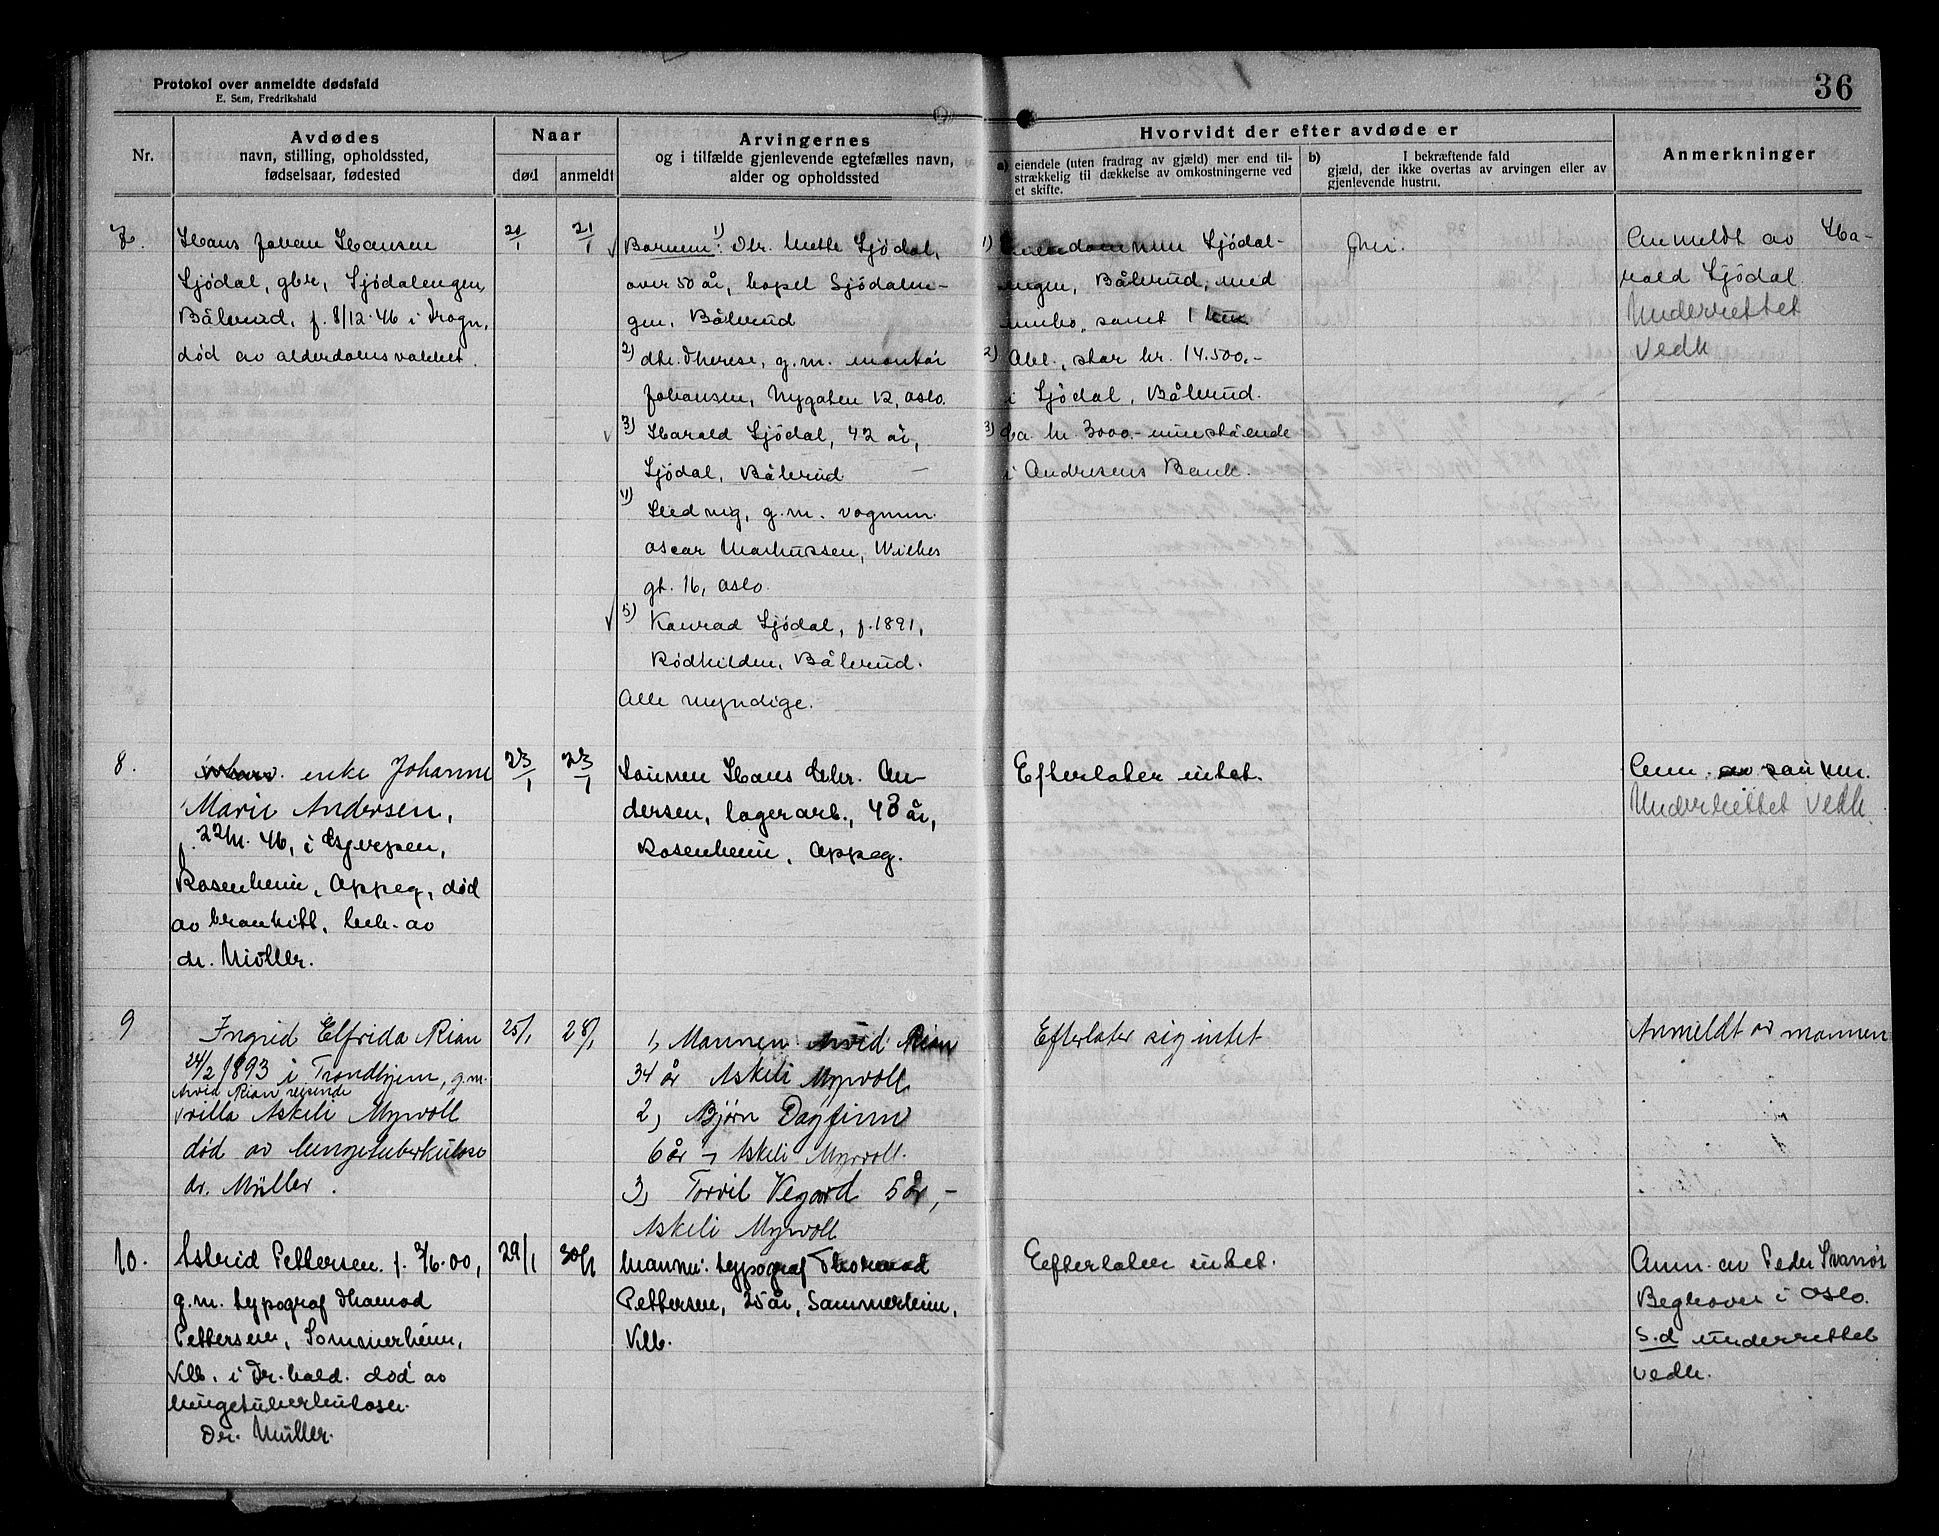 Protokol over anmeldte dødsfald
E. Sem, Fredrikshald
36
Nr.
Avdødes
navn, stilling, opholdssted,
fødselsaar, fødested
Naar
død
anmeldt
Arvingernes
og i tilfælde gjenlevende egtefælles navn,
alder og opholdssted
Hvorvidt der efter avdøde er
a) eiendele (uten fradrag av gjæld) mer end til-
strækkelig til dækkelse av omkostningerne ved
et skifte.
b) I bekræftende fald
gjæld, der ikke overtas av arvingen eller av
gjenlevende hustru.
Anmerkninger
7.
Hans Johan Hansen
Sjödal, gbr, Sjödalengen,
Bålerud, f. 8/12.46 i Frogn,
død av alderdomsvakket.
21/1
Barnem: 1) Dtr. Mette Sjödal,
over 50 år, kapel Sjödalen-
gen, Bålerud
2) dtr. Therese, g.m. montör
Johansen, Nygaten 12, Oslo.
3) Harald Sjödal, 42 år,
Sjödal, Bålerud
4) Hedvig, g.m. vognm.
Oscar Markussen, Wilkes
gt. 16, Oslo.
5) Konrad Sjödal, f. 1891,
Rödkilden, Bålerud.
Alle myndige.
1) Eiendommen Sjödal-
engen, Bålerud, med
innbo, samt 1
2) Obl., stor kr. 14.500,-
i Sjödal, Bålerud.
3) Ca. kr. 3000.- innestående
i Andresens Bank.
Anmeldt av Ha-
rald Sjödal
Underrettet
Vedk
8.
enke Johanne
Marie Andersen,
46, i Gjerpen,
Rosenheim, Oppeg, død
av bronkitt, beh. av
dr. Müller.
23/1
23/1
Sönnen Hans Chr. An-
dersen, lagerarb., 43 år,
Rosenheim, Oppeg.
Efterlater intet.
Anm. av sönnen.
Underrettet Vedk.
9
Ingrid Elfrida Rian
24/2 1893 i Trondhjem, g.m.
Arvid Rian reisende
villa Askeli Myrvoll
död av lungetuberkulose
dr. Müller.
25/1
28/1
1, Mannen Arvid Rian
34 år Askeli Myrvoll
2, Bjørn Dagfinn
6 år – Askeli Myrvoll.
3, Torvil Vegard 5 år, –
Askeli Myrvoll
Efterlater sig intet
Anmeldt av mannen
10.
Astrid Pettersen f. 00,
g.m. typograf Thomod
Pettersen, Sommerheim,
Klb. i Dr.bald. død av
lungetuberkulose.
Dr. Müller.
29/1
30/1
Mannen: typograf Thormod
Pettersen, 25 år, Sommerheim,
Klb.
Eefterlater intet.
Anm. av Peder Svanøi
Begraver i Oslo.
S.d underrettet
vedk.